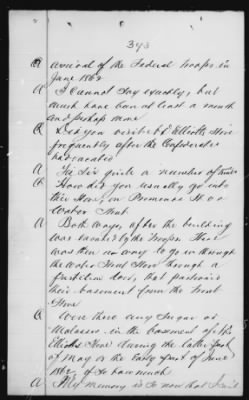 393
Q arrival of the Federal troops in
June 1862
A I cannot say exactly, but
must have been at least a month
and perhaps more
Q Did you visit Mr Elliotts Store
frequently after the Confederates
had vacated
A Yes Sir quite a number of times
Q How did you usually go into
this Store, on Promenade St or
Water Street
A Both ways, after the building
was vacated by the Troops. There
was then no way to go in through
the Water Street Store through a
partition door, that partioned
their basement from the Front
Store
Q Were there any Sugar or
Molasses in the basement of Mr
Elliotts Store during the latter part
of May or the Early part of June
1862, if so how much
A My memory is to now that